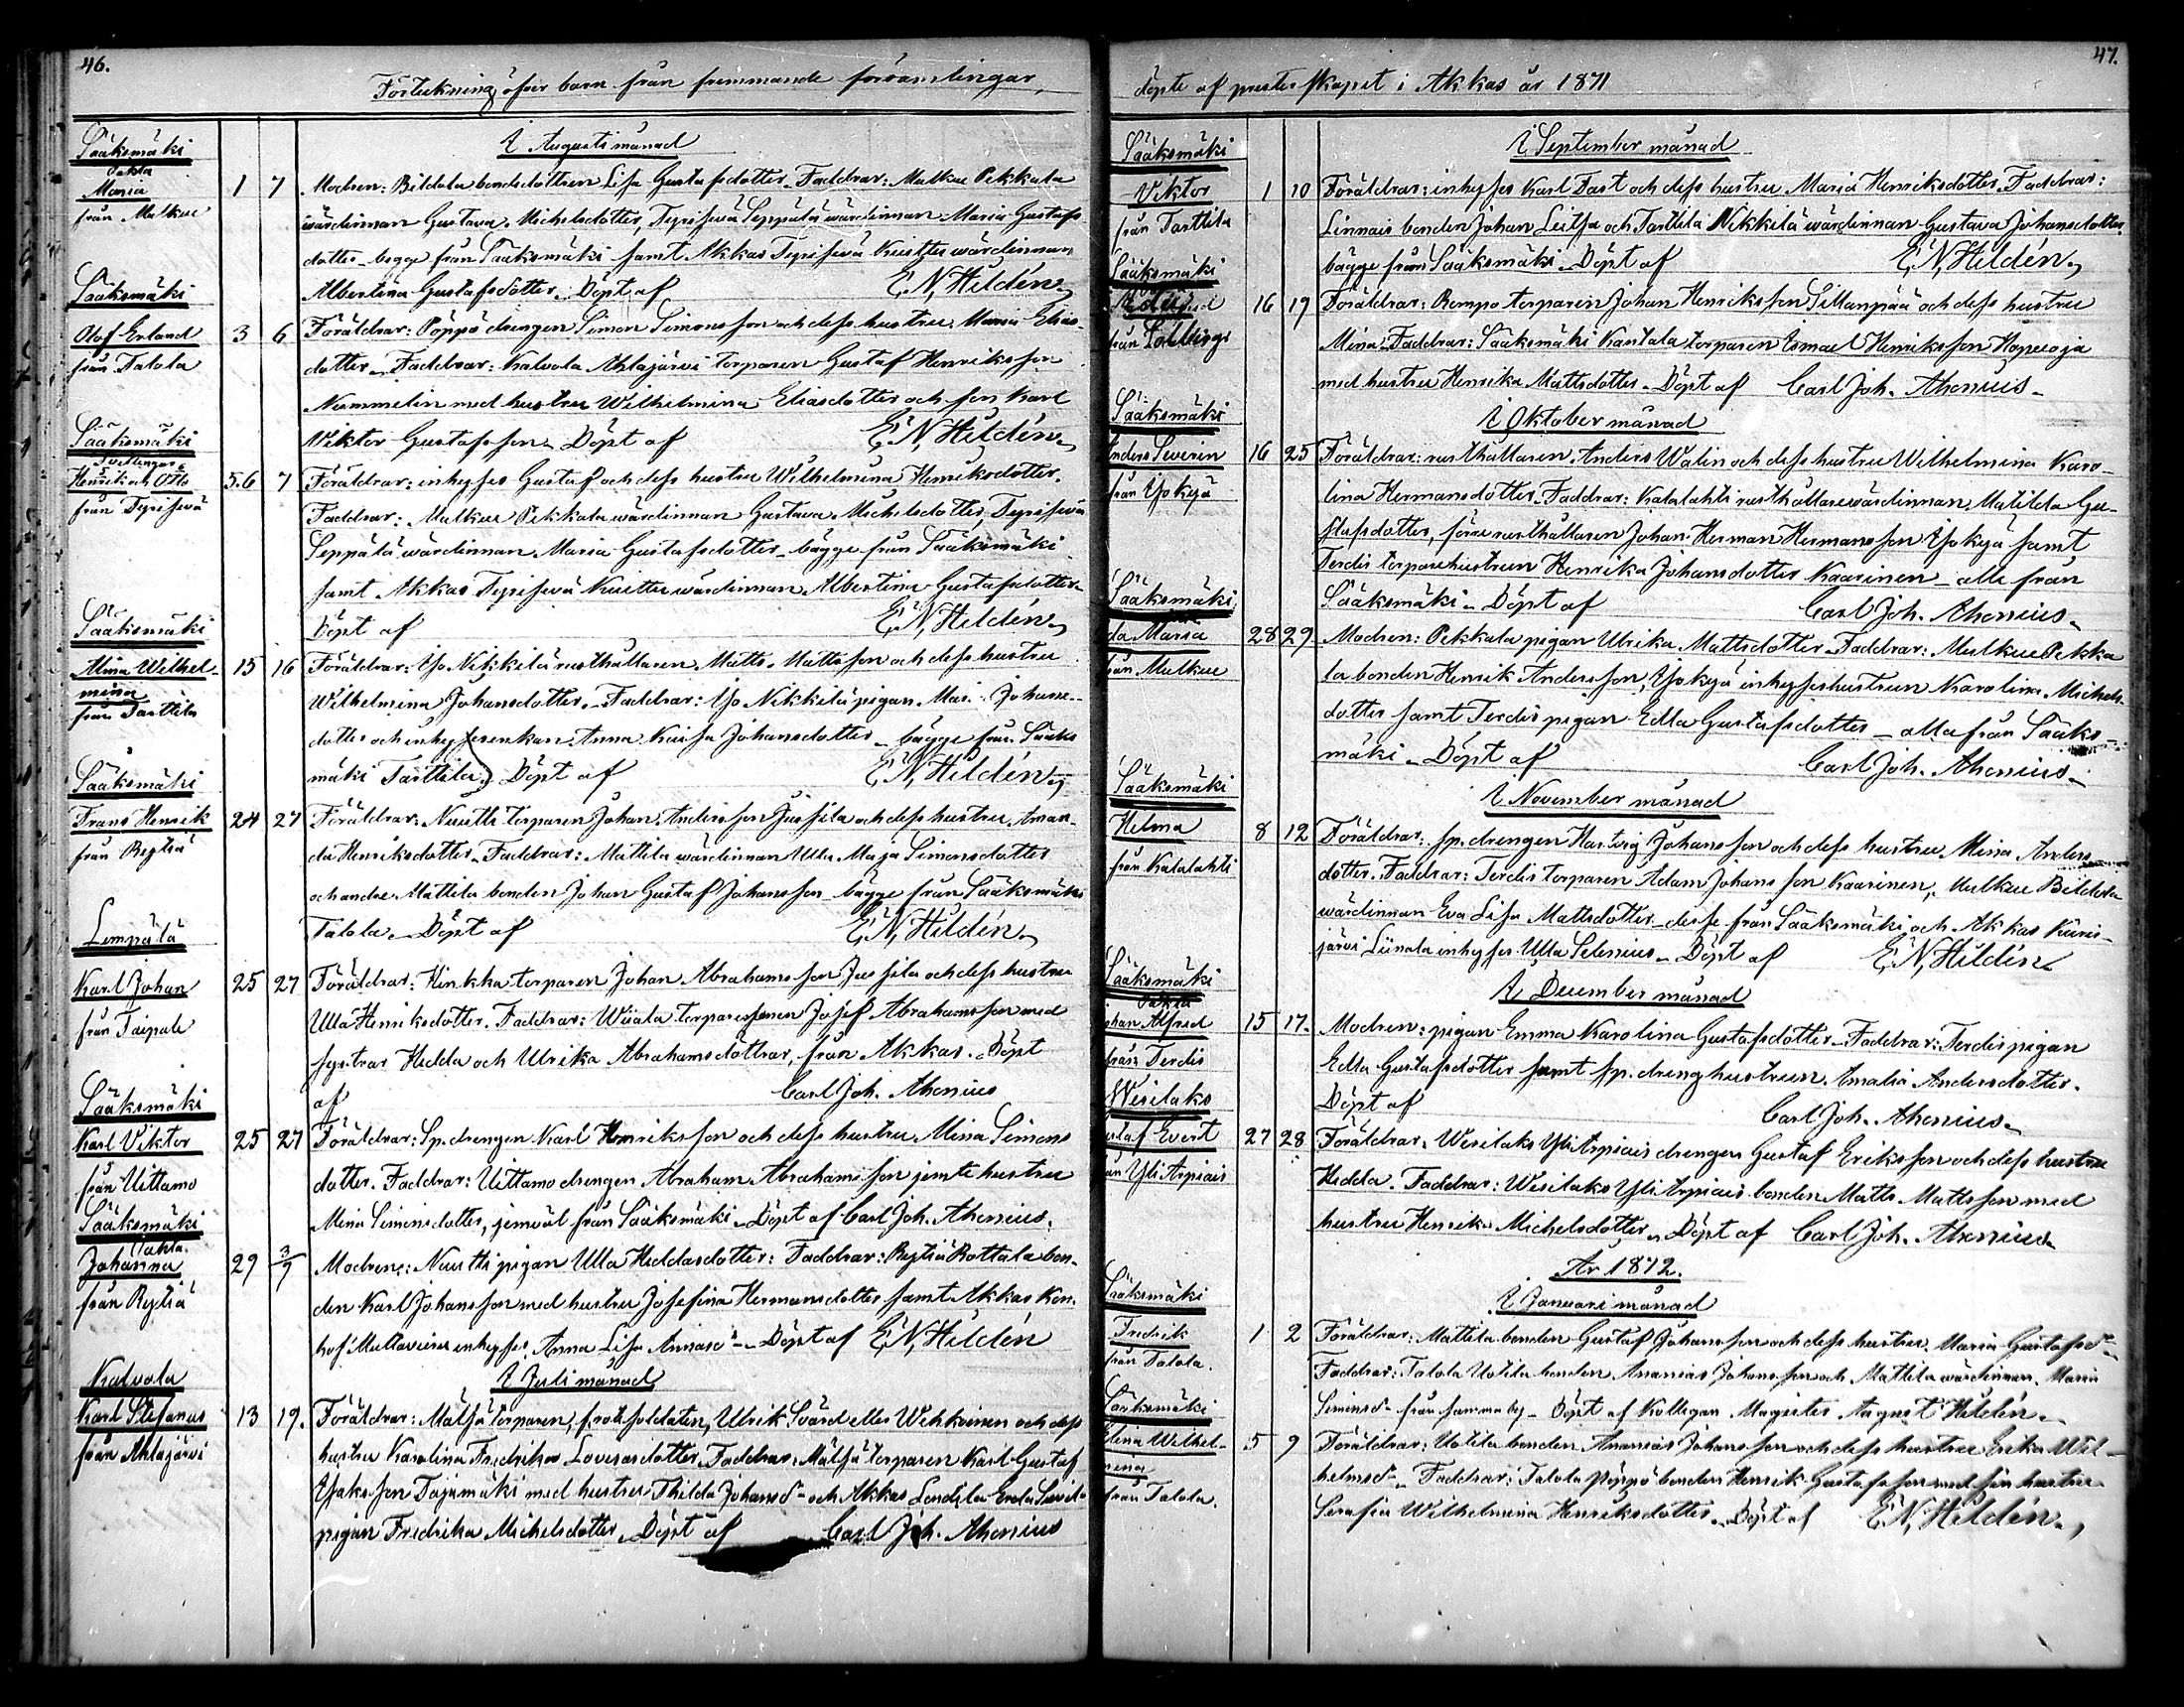 46.
Förteckning öfver barn från främmande församlingar,
I Augusti månad
Sääksmäki
oäkta
Maria
från Mulkue
1 7 Modren: Bildala bondedottren Lisa Gustafsdotter. Faddrar: Mulkue Pekkala
wärdinnan Gustava Michelsdotter, Seppälä wärdinnan Maria Gustafs
dotter begge från Sääksmäki samt Akkas wärdinnan
Albertina Gustafsdotter. Döpt af E.N. Hildén.
Sääksmäki
Olof Erland
från Talola
3 6 Föräldrar: Pöppö drengen Simon Simonsson och dess hustru Maria Elias-
dotter. Faddrar: Kalvola Ahlajärvi torparen Gustaf Henriksson
Nummelin med hustru Wilhelmina Eliasdotter och son Karl
Viktor Gustafsson. Döpt af E.N. Hildén.
Sääksmäki
Tvillingar
Henrik och Otto
5.6 7 Föräldrar: inhyses Gustaf och dess hustru Wilhelmina Henriksdotter.
Faddrar: Mulkue Pekkala wärdinnan Gustava Michelsdotter,
Seppälä wärdinnan Maria Gustafsdotter bägge från Sääksmäki
samt Akkas wärdinnan Albertina Gustafsdotter
Döpt af E.N. Hildén.
Sääksmäki
Mina Wilhel-
mina
från Tarttila
15 16 Föräldrar: Nikkilä rusthållaren Matts Mattsson och dess hustru
Wilhelmina Johansdotter. Faddrar: Nikkilä pigan Johans-
dotter och Anna Kaisa Johansdotter bägge från Sääks
mäki Tarttila. Döpt af E.N. Hildén.
Sääksmäki
Frans Henrik
från Ryttiä
24 27 Föräldrar: Nuutti torparen Johan Andersson Jussila och dess hustru Aman-
da Henriksdotter. Faddrar: Mattila wärdinnan Ulla Maja Simonsdotter
och andre Mattila bonden Johan Gustaf Johansson bägge från Sääksmäki
Talola. Döpt af E.N. Hildén.
Lempälä
Karl Johan
från Taipale
25 27 Föräldrar: Hinkka torparen Johan Abrahamsson Jussila och dess hustru
Ulla Henriksdotter. Faddrar: Wiiala torparesonen Josef Abrahamsson med
systrar Hedda och Ulrika Abrahamsdöttrar, från Akkas. Döpt
af Carl Joh. Ahonius
Sääksmäki
Karl Viktor
från Uittamo
25 27 Föräldrar: Sp. drengen Karl Henriksson och dess hustru Mina Simons
dotter. Faddrar: Uittamo drengen Abraham Abrahamsson jemte hustru
Mina Simonsdotter, jemväl från Sääksmäki. Döpt af Carl Joh. Ahonius.
Sääksmäki
oäkta
Johanna
från Ryttiä
29 3/9 Modren: Nuutti pigan Ulla Heddasdotter: Faddrar: Ryttiä Rottala bon-
den Karl Johansson med hustru Josefina Hermansdotter samt Akkas Kon-
ho inhyses Anna Lisa. Döpt af E.N. Hildén
I Juli månad
Kalvola
Karl Stefanus
från Ahlajärvi
13 19. Föräldrar: Mälsä torparen, f. rotesoldaten, Ulrik Svärd eller Wehkoinen och dess
hustru Karolina Fredrika Lovisasdotter. Faddrar: Mälsä torparen Karl Gustaf
Isaksson Tajamäki med hustru Thilda Johansd:r och Akkas
pigan Fredrika Michelsdotter. Döpt af Carl Joh. Ahonius
47.
döpte af presterskapet i Akkas år 1871
I September månad
Sääksmäki
Viktor
från Tarttila
1 10 Föräldrar: inhyses Karl Fast och dess hustru Maria Henriksdotter. Faddrar:
Linnais bonden Johan och Tarttila Nikkilä wärdinnan Gustava Johansdotter
bägge från Sääksmäki. Döpt af E.N. Hildén.
Sääksmäki
16 19 Föräldrar: Rompo torparen Johan Henriksson Sillanpää och dess hustru
Mina. Faddrar: Sääksmäki Kantala torparen Ismael Henriksson Hopeoja
med hustru Henrika Mattsdotter. Döpt af Carl Joh. Ahonius.
I Oktober månad
Sääksmäki
nders Severin
16 25 Föräldrar: rusthållaren Anders Walin och dess hustru Wilhelmina Karo-
lina Hermansdotter. Faddrar: Katalahti rusthållarewärdinnan Matilda Gu-
stafsdotter, rusthållaren Johan Herman Hermansson samt
Terdis torparehustrun Henrika Johansdotter Kaarinen alla från
Sääksmäki. Döpt af Carl Joh. Ahonius.
Sääksmäki
da Maria
från Mulkue
28 29 Modren: Pekkala pigan Ulrika Mattsdotter. Faddrar: Mulkue Pekka
la bonden Henrik Andersson, inhyseshustrun Karolina Michels
dotter samt Terdis pigan Edla Gustafsdotter alla från Sääks-
mäki. Döpt af Carl Joh. Ahonius.
I November månad
Sääksmäki
Helma
från Katalahti
8 12 Föräldrar: sp. drengen Hartvig Johansson och dess hustru Mina Anders
dotter. Faddrar: Terdis torparen Adam Johansson Kaarinen, Mulkue Bildala
wärdinnan Eva Lisa Mattsdotter desse från Sääksmäki och Akkas Kiiris-
järvi Liinala inhyses Ulla Selenius. Döpt af E.N. Hildén
I December månad
Sääksmäki
oäkta
ohan Alfred
från Terdis
15 17. Modren: pigan Emma Karolina Gustafsdotter. Faddrar: Terdis pigan
Edla Gustafsdotter samt sp. dreng hustrun Amalia Andersdotter.
Döpt af Carl Joh. Ahonius.
Wesilaks
ustaf Evert
ån Yli Arpiais
27 28 Föräldrar: Wesilaks Yli Arpiais drengen Gustaf Eriksson och dess hustru
Hedda. Faddrar: Wesilaks Yli Arpiais bonden Matts Mattsson med
hustru Henrika Michelsdotter. Döpt af Carl Joh. Ahonius
År 1872.
I Januari månad
Sääksmäki
Fredrik
från Talola.
1 2 Föräldrar: Mattila bonden Gustaf Johansson och dess hustru Maria Gustafsd:r
Faddrar: Talola Uotila bonden Ananias Johansson och Mattila wärdinnan Maria
Simonsd:r från samma by. Döpt af Kollegan Magister August Hildén.
Sääksmäki
Elina Wilhel-
mina
från Talola.
5 9 Föräldrar: Uotila bonden Ananias Johansson och dess hustru Erika Wil-
helmsd:r. Faddrar: Talola Pöppö bonden Henrik Gustafsson med sin hustru
Serafia Wilhelmina Henriksdotter. Döpt af E.N. Hildén.